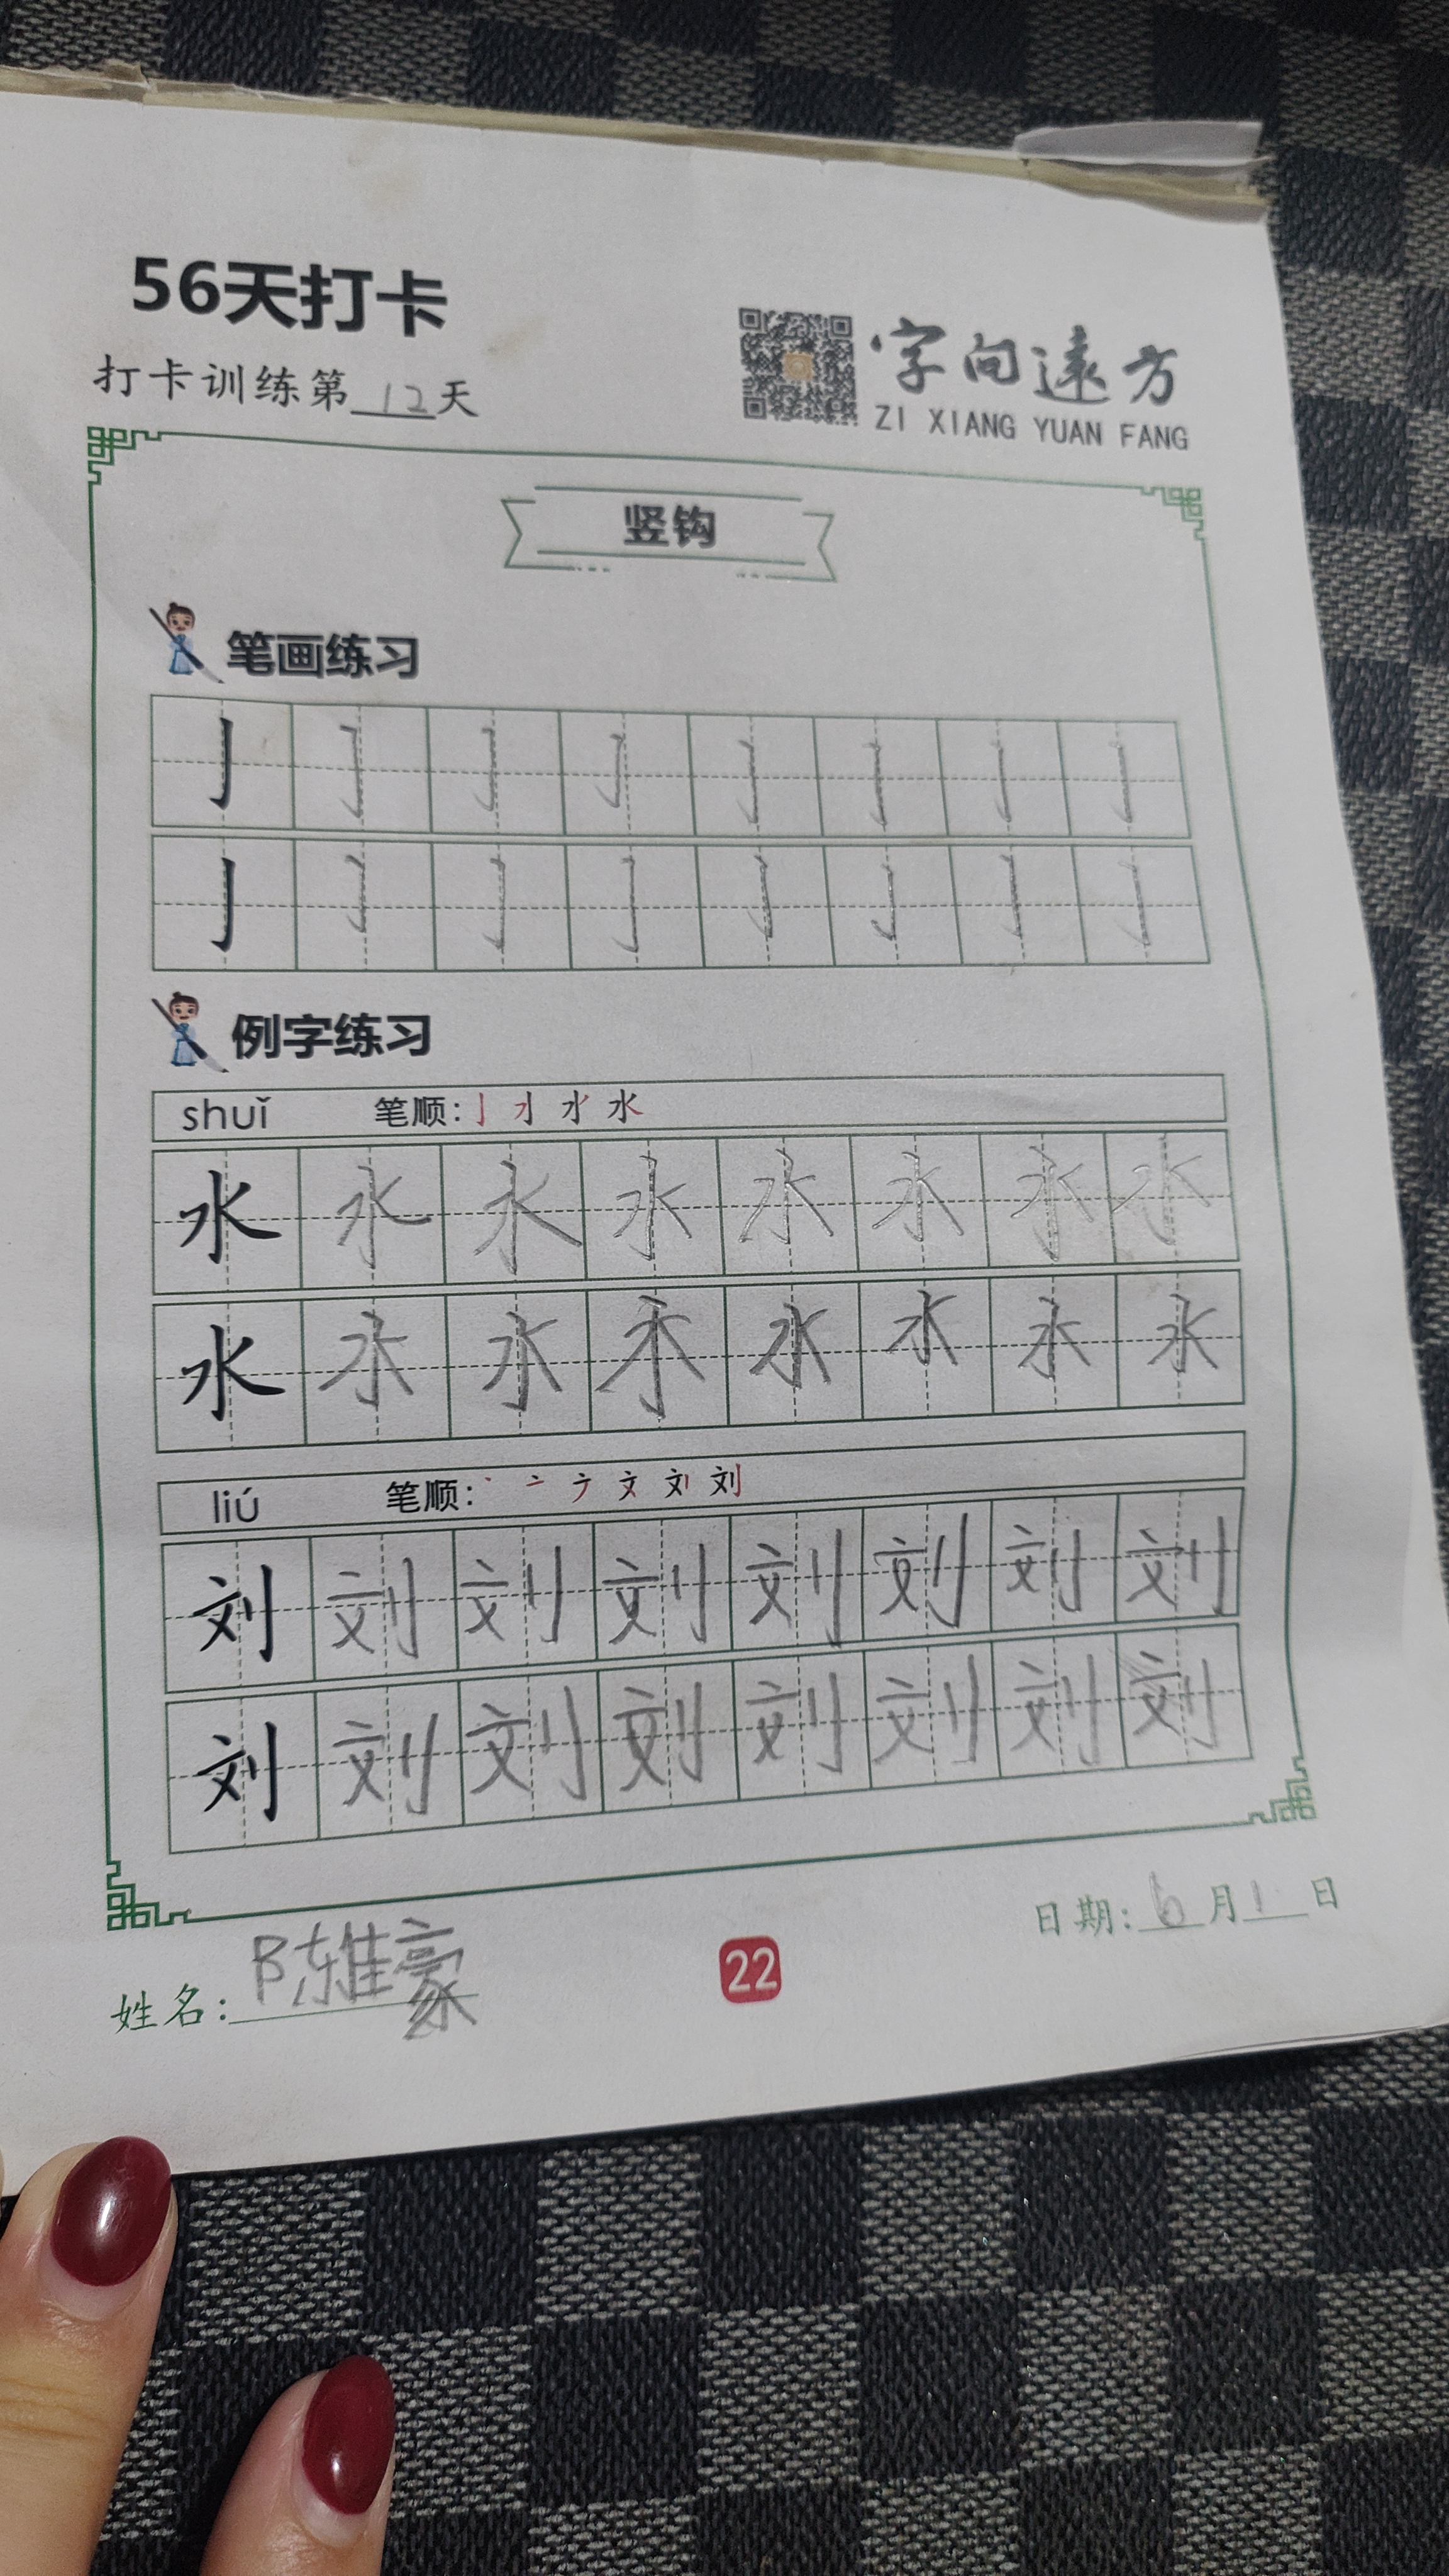 56天打卡
打卡训练第12天
字向遠方
ZI XIANG YUAN FANG
竖钩
笔画练习
亅 亅 亅 亅 亅 亅 亅 亅
亅 亅 亅 亅 亅 亅 亅 亅
例字练习
shuǐ 笔顺: 水
水 水 水 水 水 水 水 水
水 水 水 水 水 水 水 水
liú 笔顺: 文 刘
刘 刘 刘 刘 刘 刘 刘 刘
刘 刘 刘 刘 刘 刘 刘 刘
日期: 6月1日
姓名: 陈雅豪
22